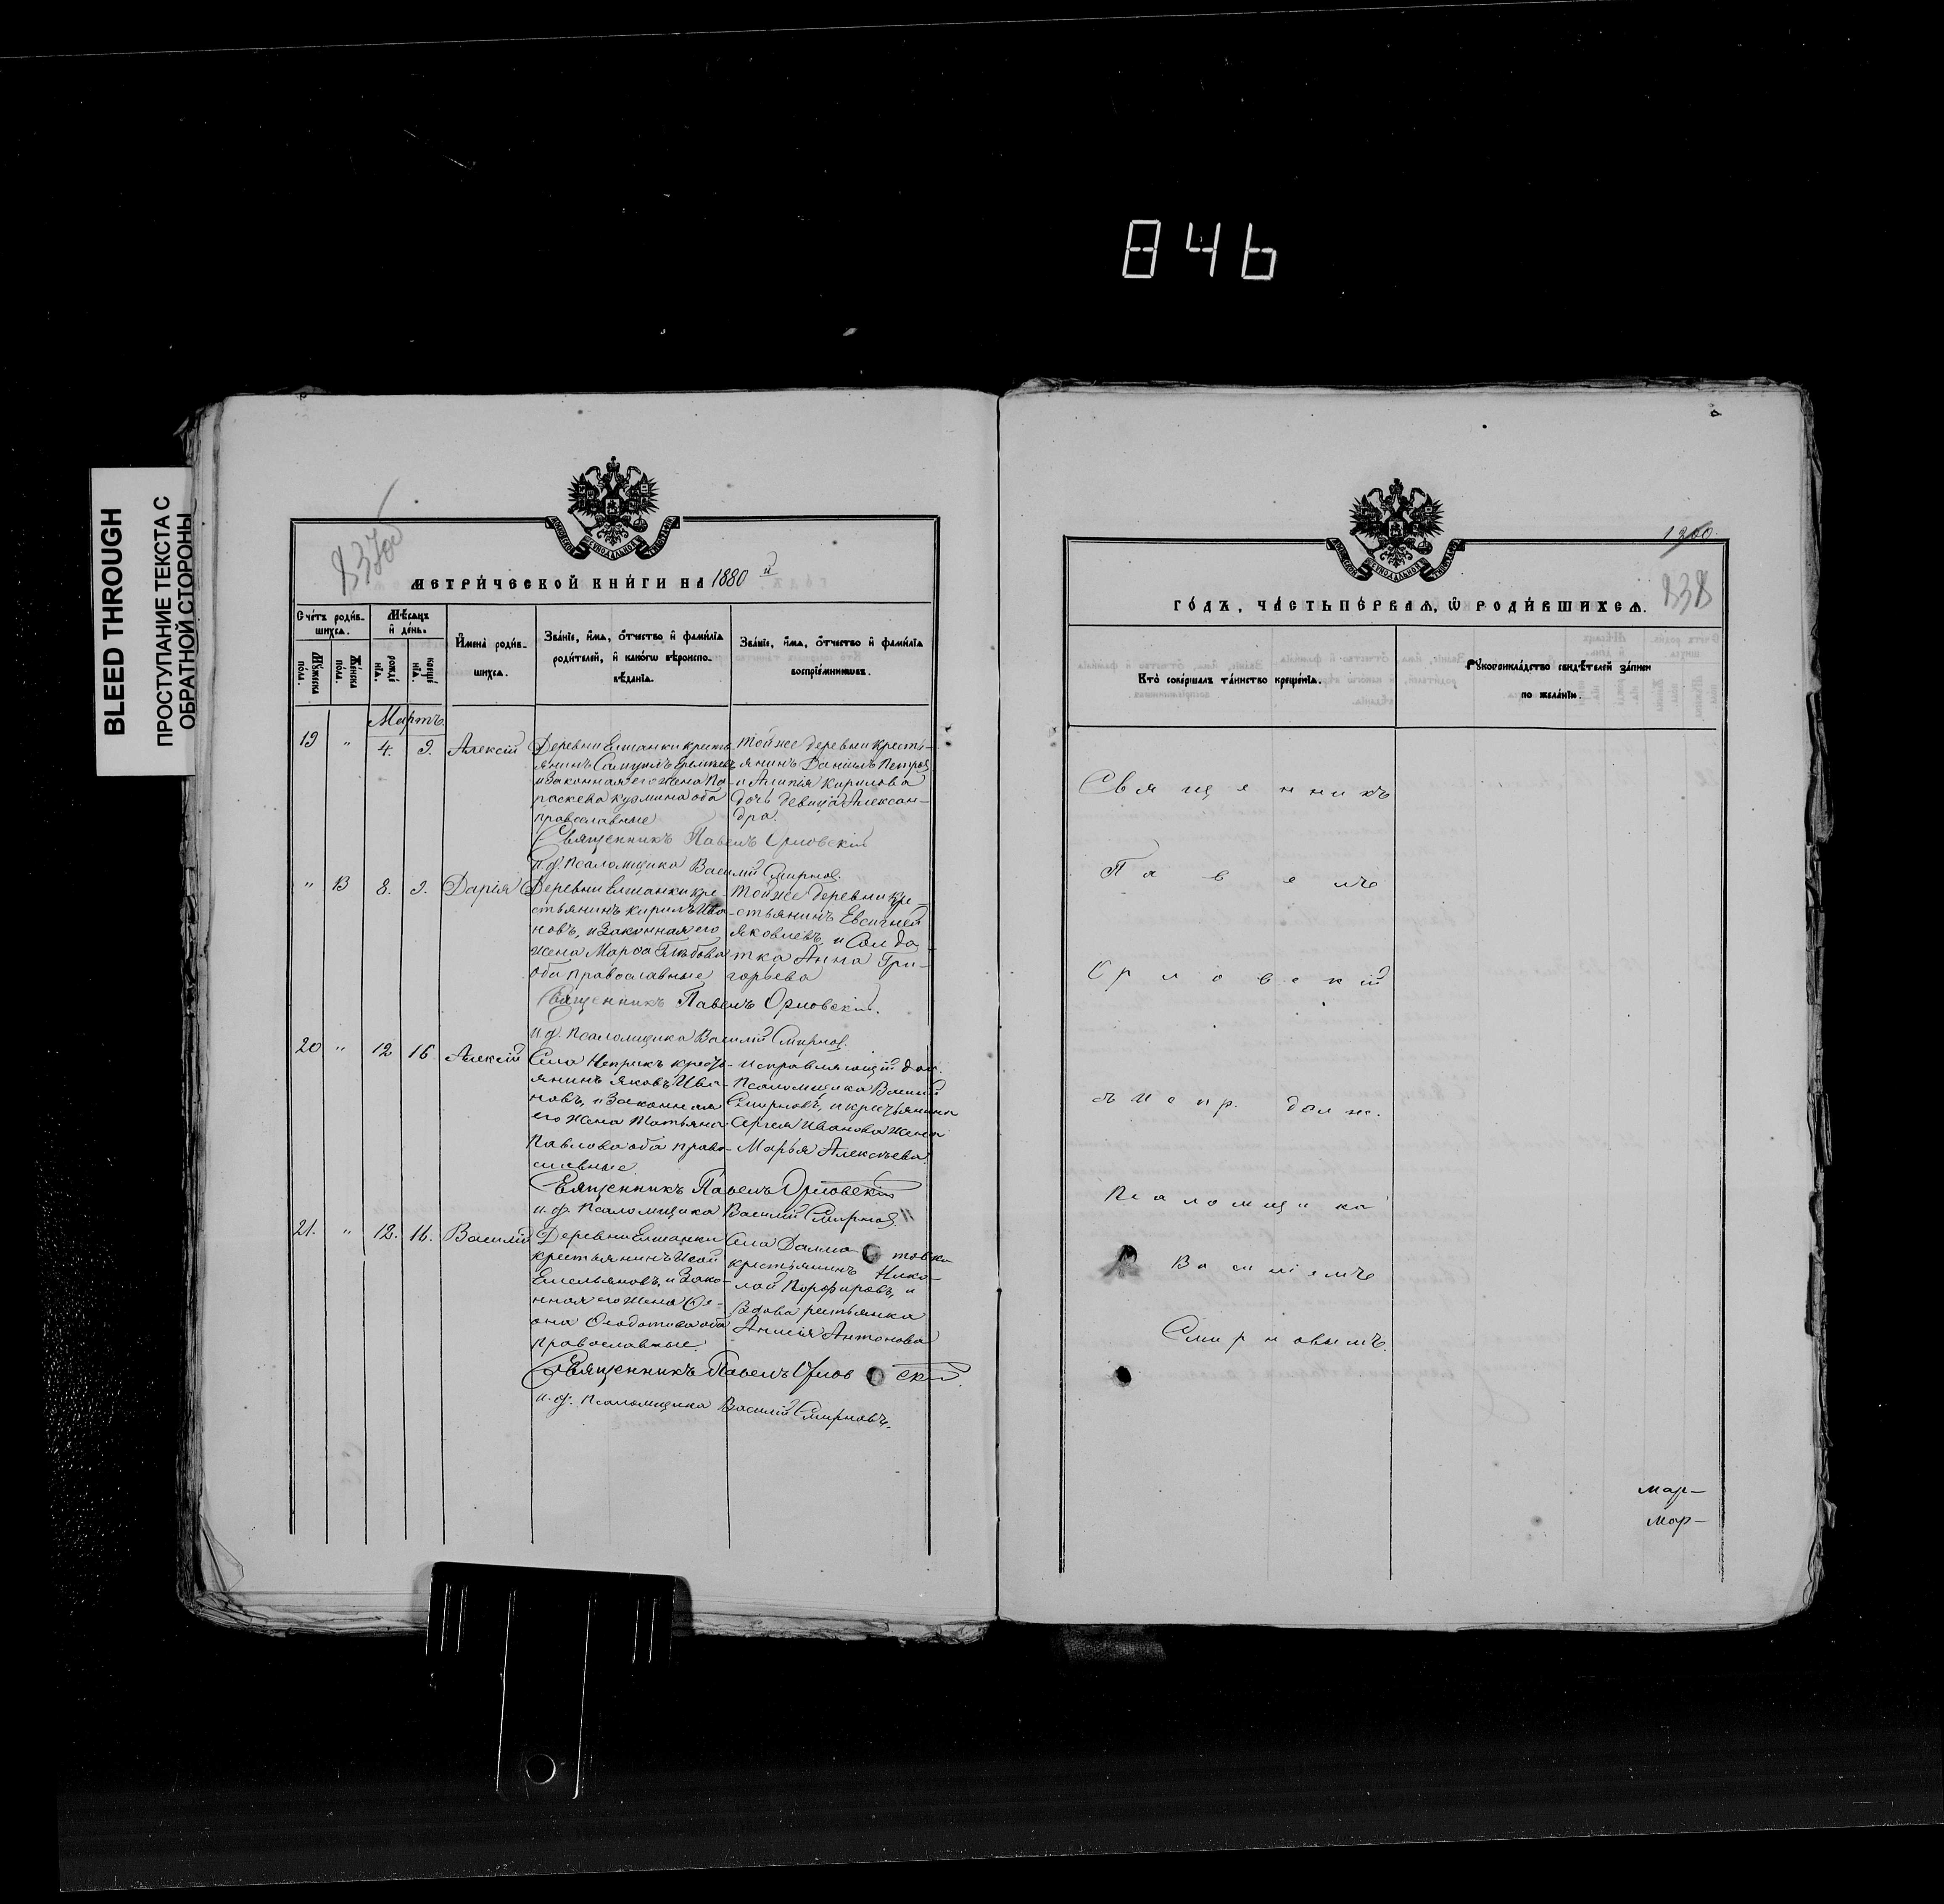 846
BLEED THROUGH
ПРОСТУПАНИЕ ТЕКСТА С
ОБРАТНОЙ СТОРОНЫ
МЕТРИ́ЧЕСКОЙ КНИ́ГИ НА 1880 й
Сче́тъ роди́в-
шихся.
Мѣ́сяцъ
и҆ де́нь.
И҆мена̀ роди́в-
шихся.
Зва́нїе, и҆́мя, ѻ҆́тчество и҆ фами́лїя
роди́телей, и҆ како́гѡ вѣроиспо-
вѣ́данїя.
Зва́нїе, и҆́мя, ѻ҆́тчество и҆ фами́лїя
воспрїе́мникѡвъ.
Мꙋ́жеска
по́ла.
Же́нска
по́ла.
рожде́
нїя.
креще́
нїя.
Мартъ.
19 " 4. 9. Алексій
Деревни Елшанки кресть-
янинъ Самуилъ
и законная его жена Па-
раскева Кузмина оба
православные
Той же деревни кресть-
янинъ Данилъ Петров
и Кирилова
дочь девица Алексан-
дра.
Священникъ Павелъ Орловскій
И.д. Псаломщика Василій Смирнов.
" 13 8. 9. Дарія
Деревни Елшанки кре-
стьянинъ Кирилъ Ива-
новъ, и законная его
жена Марѳа Глѣбова
оба православные
Той же деревни кре-
стьянинъ Евсигней
Яковлевъ, и Солда
тка Анна Гри-
горьева
Священникъ Павелъ Орловскій.
И.д. Псаломщика Василій Смирнов.
20 " 12 16. Алексій
Села Неприкъ кресть-
янинъ Яковъ Ива-
новъ, и законная
его жена Татьяна
Павлова оба право-
славные.
Исправляющій дол.
Псаломщика Василій
Смирновъ, и крестьянина
Сергея Иванова жена
Марья Алексѣева.
Священникъ Павелъ Орловскій
и.д. Псаломщика Василій Смирнов.
21. " 12. 16. Василій
Деревни Елшанки
крестьянинъ Исай
Емельяновъ, и Зако-
нная его жена Ѳе-
она Ѳедотова оба
православные.
Села товка
крестьянинъ Нико-
лай Порфировъ, и
Вдова
Анисія Антонова
Священникъ Павелъ Орлов скій.
и.д. Псаломщика Василій Смирновъ.
1300.
838
ГО́ДЪ, ЧА́СТЬ ПЕ́РВАЯ, Ѡ҆ РОДИ́ВШИХСЯ.
Кто̀ соверша́лъ та́инство креще́нїя.
Рꙋкоприкла́дство свидѣ́телей за́писи
по жела́нїю.
Священникъ
Павелъ
Орловскій
съ Испр. долж.
Псаломщика
Василіемъ
Смирновымъ.
Мар-
Мар-